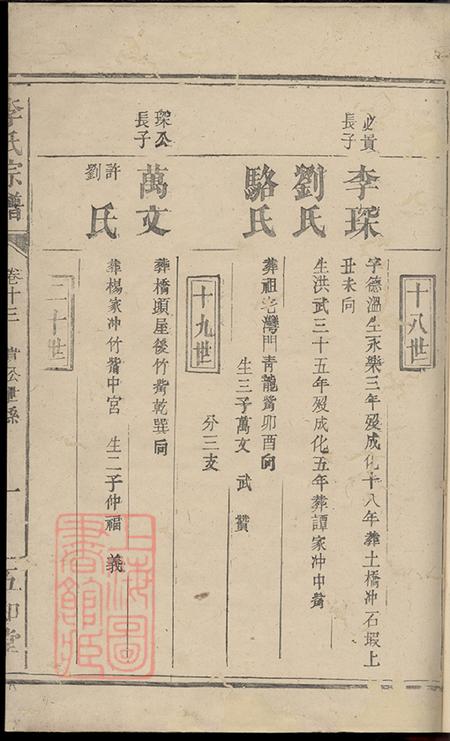 十八世
必貴長子
李琛
字德溫生永樂三年歿成化十八年葬土橋冲石塅上
丑未向
劉氏
生洪武三十五年歿成化五年葬譚家冲中嘴
駱氏
葬祖宅灣門青龍嘴卯酉向
生三子萬文 武 贊
十九世
分三支
琛公長子
萬文
葬橋頭屋後竹嘴乾巽向
許劉氏
葬楊家冲竹嘴中宮 生二子仲福 義
二十世
李氏宗譜
卷十三
一
上海圖書館藏